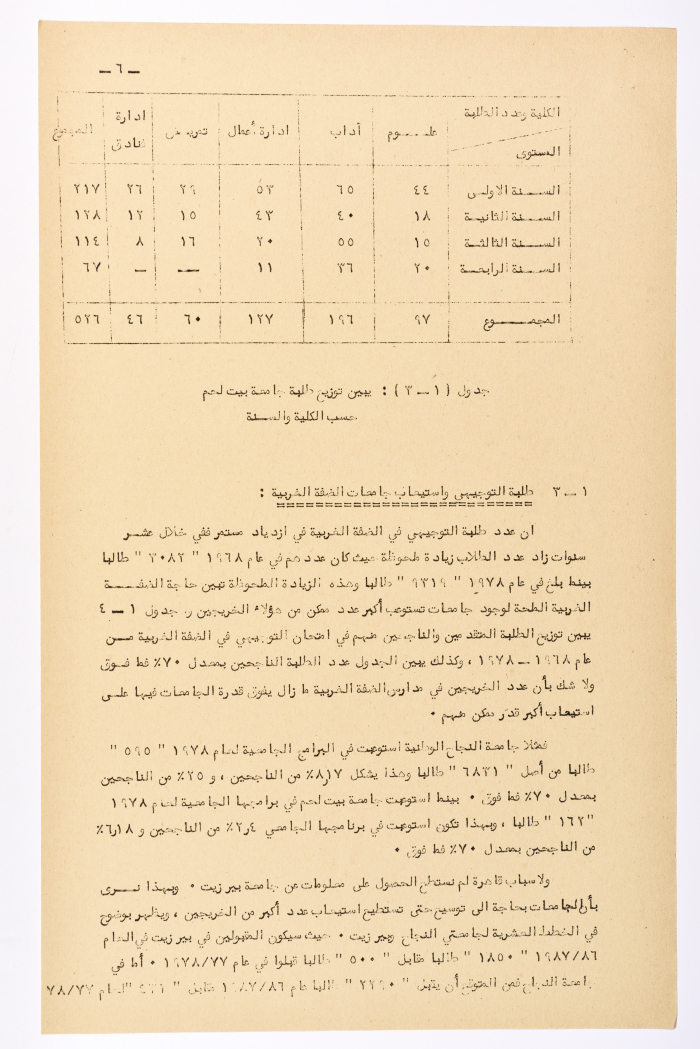 ـ ٦ ـ
الكلية وعدد الطلبة المستوى علـــوم أداب ادارة أعمال تمريض ادارة فنادق المجموع
السـنة الاولـى ٤٤ ٦٥ ٥٣ ٢٩ ٢٦ ٢١٧
السـنة الثانيـة ١٨ ٤٠ ٤٣ ١٥ ١٢ ١٢٨
السـنة الثالثـة ١٥ ٥٥ ٢٠ ١٦ ٨ ١١٤
السـنة الرابعـة ٢٠ ٣٦ ١١ ـ ـ ٦٧
المجمــــوع ٩٧ ١٩٦ ١٢٧ ٦٠ ٤٦ ٥٢٦
جدول ( ١ ـ ٣ ) : يبين توزيع طلبة جامعة بيت لحم
حسب الكلية والسـنة
١ ـ ٣ طلبة التوجيهي واستيعاب جامعات الضفة الغربية :
ان عدد طلبة التوجيهي في الضفة الغربية في ازدياد مستمر ففي خلال عشـر
سنوات زاد عدد الطلاب زيادة ملحوظة حيث كان عددهم في عام ١٩٦٨ " ٣٠٨٢ " طالبا
بينما بلغ في عام ١٩٧٨ " ٩٣١٩ " طالبا وهذه الزيادة الملحوظة تبين حاجة الضفـــة
الغربية الملحة لوجود جامعات تستوعب أكبر عدد ممكن من هؤلاء الخريجين ر جدول ١ ـ ٤
يبين توزيع الطلبة المتقدمين والناجحين منهم في امتحان التوجيهي في الضفة الغربية مــن
عام ١٩٦٨ ـ ١٩٧٨ ، وكذلك يبين الجدول عدد الطلبة الناجحين بمعدل ٧٠٪ فما فـوق
ولا شك بأن عدد الخريجين في مدارس الضفة الغربية ما زال يفوق قدرة الجامعات فيها علـى
استيعاب أكبر قدر ممكن منهم ٠
فمثلا جامعة النجاح الوطنية استوعبت في البرامج الجامعية لعام ١٩٧٨ " ٥٩٥ "
طالبا من أصل " ٦٨٣١ " طالبا وهذا يشكل ٨ر١٧٪ من الناجحين ، و ٢٥٪ من الناجحين
بمعدل ٧٠٪ فما فوق ٠ بينما استوعبت جامعة بيت لحم في برامجها الجامعية لعـام ١٩٧٨
" ١٦٢ " طالبا ، وبهذا تكون استوعبت في برنامجها الجامعي ٤ر٢٪ من الناجحين و ١٨ر٦٪
من الناجحين بمعدل ٧٠٪ فما فوق ٠
ولاسباب قاهرة لم نستطع الحصول على معلومات عن جامعة بير زيت ٠ وبهذا نــرى
بأن الجامعات بحاجة الى توسيع حتى تستطيع استيعاب عدد أكبر من الخريجين ، ويظهر بوضوح
في الخطط العشرية لجامعتي النجاح وبير زيت ٠ حيث سيكون المقبولين في بير زيت في العام
١٩٨٧/٨٦ " ١٨٥٠ " طالبا مقابل " ٥٠٠ " طالبا قبلوا في عام ١٩٧٨/٧٧ ٠ أما في
جامعة النجاح فمن المتوقع أن يقبل " ٢٢٩٠ " طالبا عام ١٩٨٧/٨٦ مقابل " " لعام ٧٨/٧٧